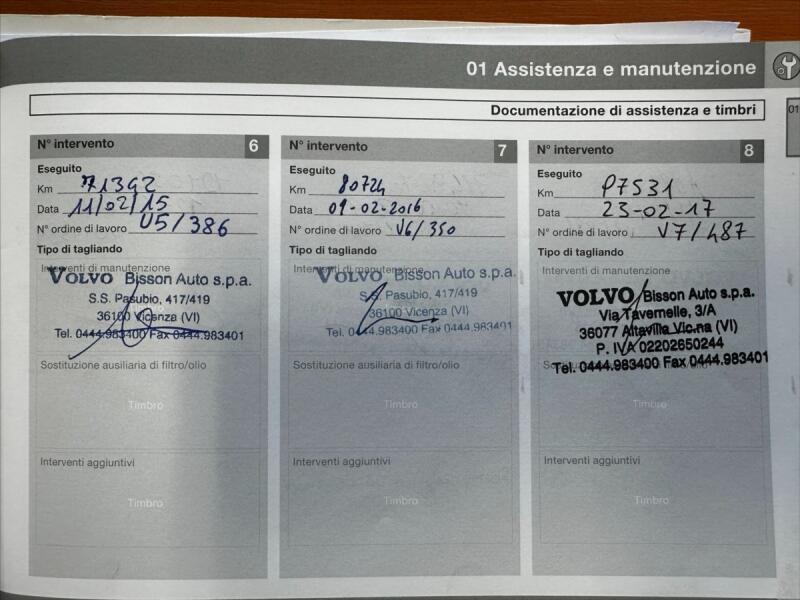 01 Assistenza e manutenzione
01
Documentazione di assistenza e timbri
N° intervento 6
Eseguito
Km 71392
Data 11/02/15
N° ordine di lavoro U5/386
Tipo di tagliando
Interventi di manutenzione
VOLVO Bisson Auto s.p.a.
S.S. Pasubio, 417/419
36100 Vicenza (VI)
Tel. 0444.983400 Fax 0444.983401
Sostituzione ausiliaria di filtro/olio
Timbro
Interventi aggiuntivi
Timbro
N° intervento 7
Eseguito
Km 80724
Data 09-02-2016
N° ordine di lavoro V6/350
Tipo di tagliando
Interventi di manutenzione
VOLVO Bisson Auto s.p.a.
S.S. Pasubio, 417/419
36100 Vicenza (VI)
Tel. 0444.983400 Fax 0444.983401
Sostituzione ausiliaria di filtro/olio
Timbro
Interventi aggiuntivi
Timbro
N° intervento 8
Eseguito
Km 87531
Data 23-02-17
N° ordine di lavoro V7/487
Tipo di tagliando
Interventi di manutenzione
VOLVO Bisson Auto s.p.a.
Via Tavernelle, 3/A
36077 Altavilla Vic.na (VI)
P. IVA 02202650244
Tel. 0444.983400 Fax 0444.983401
Timbro
Interventi aggiuntivi
Timbro